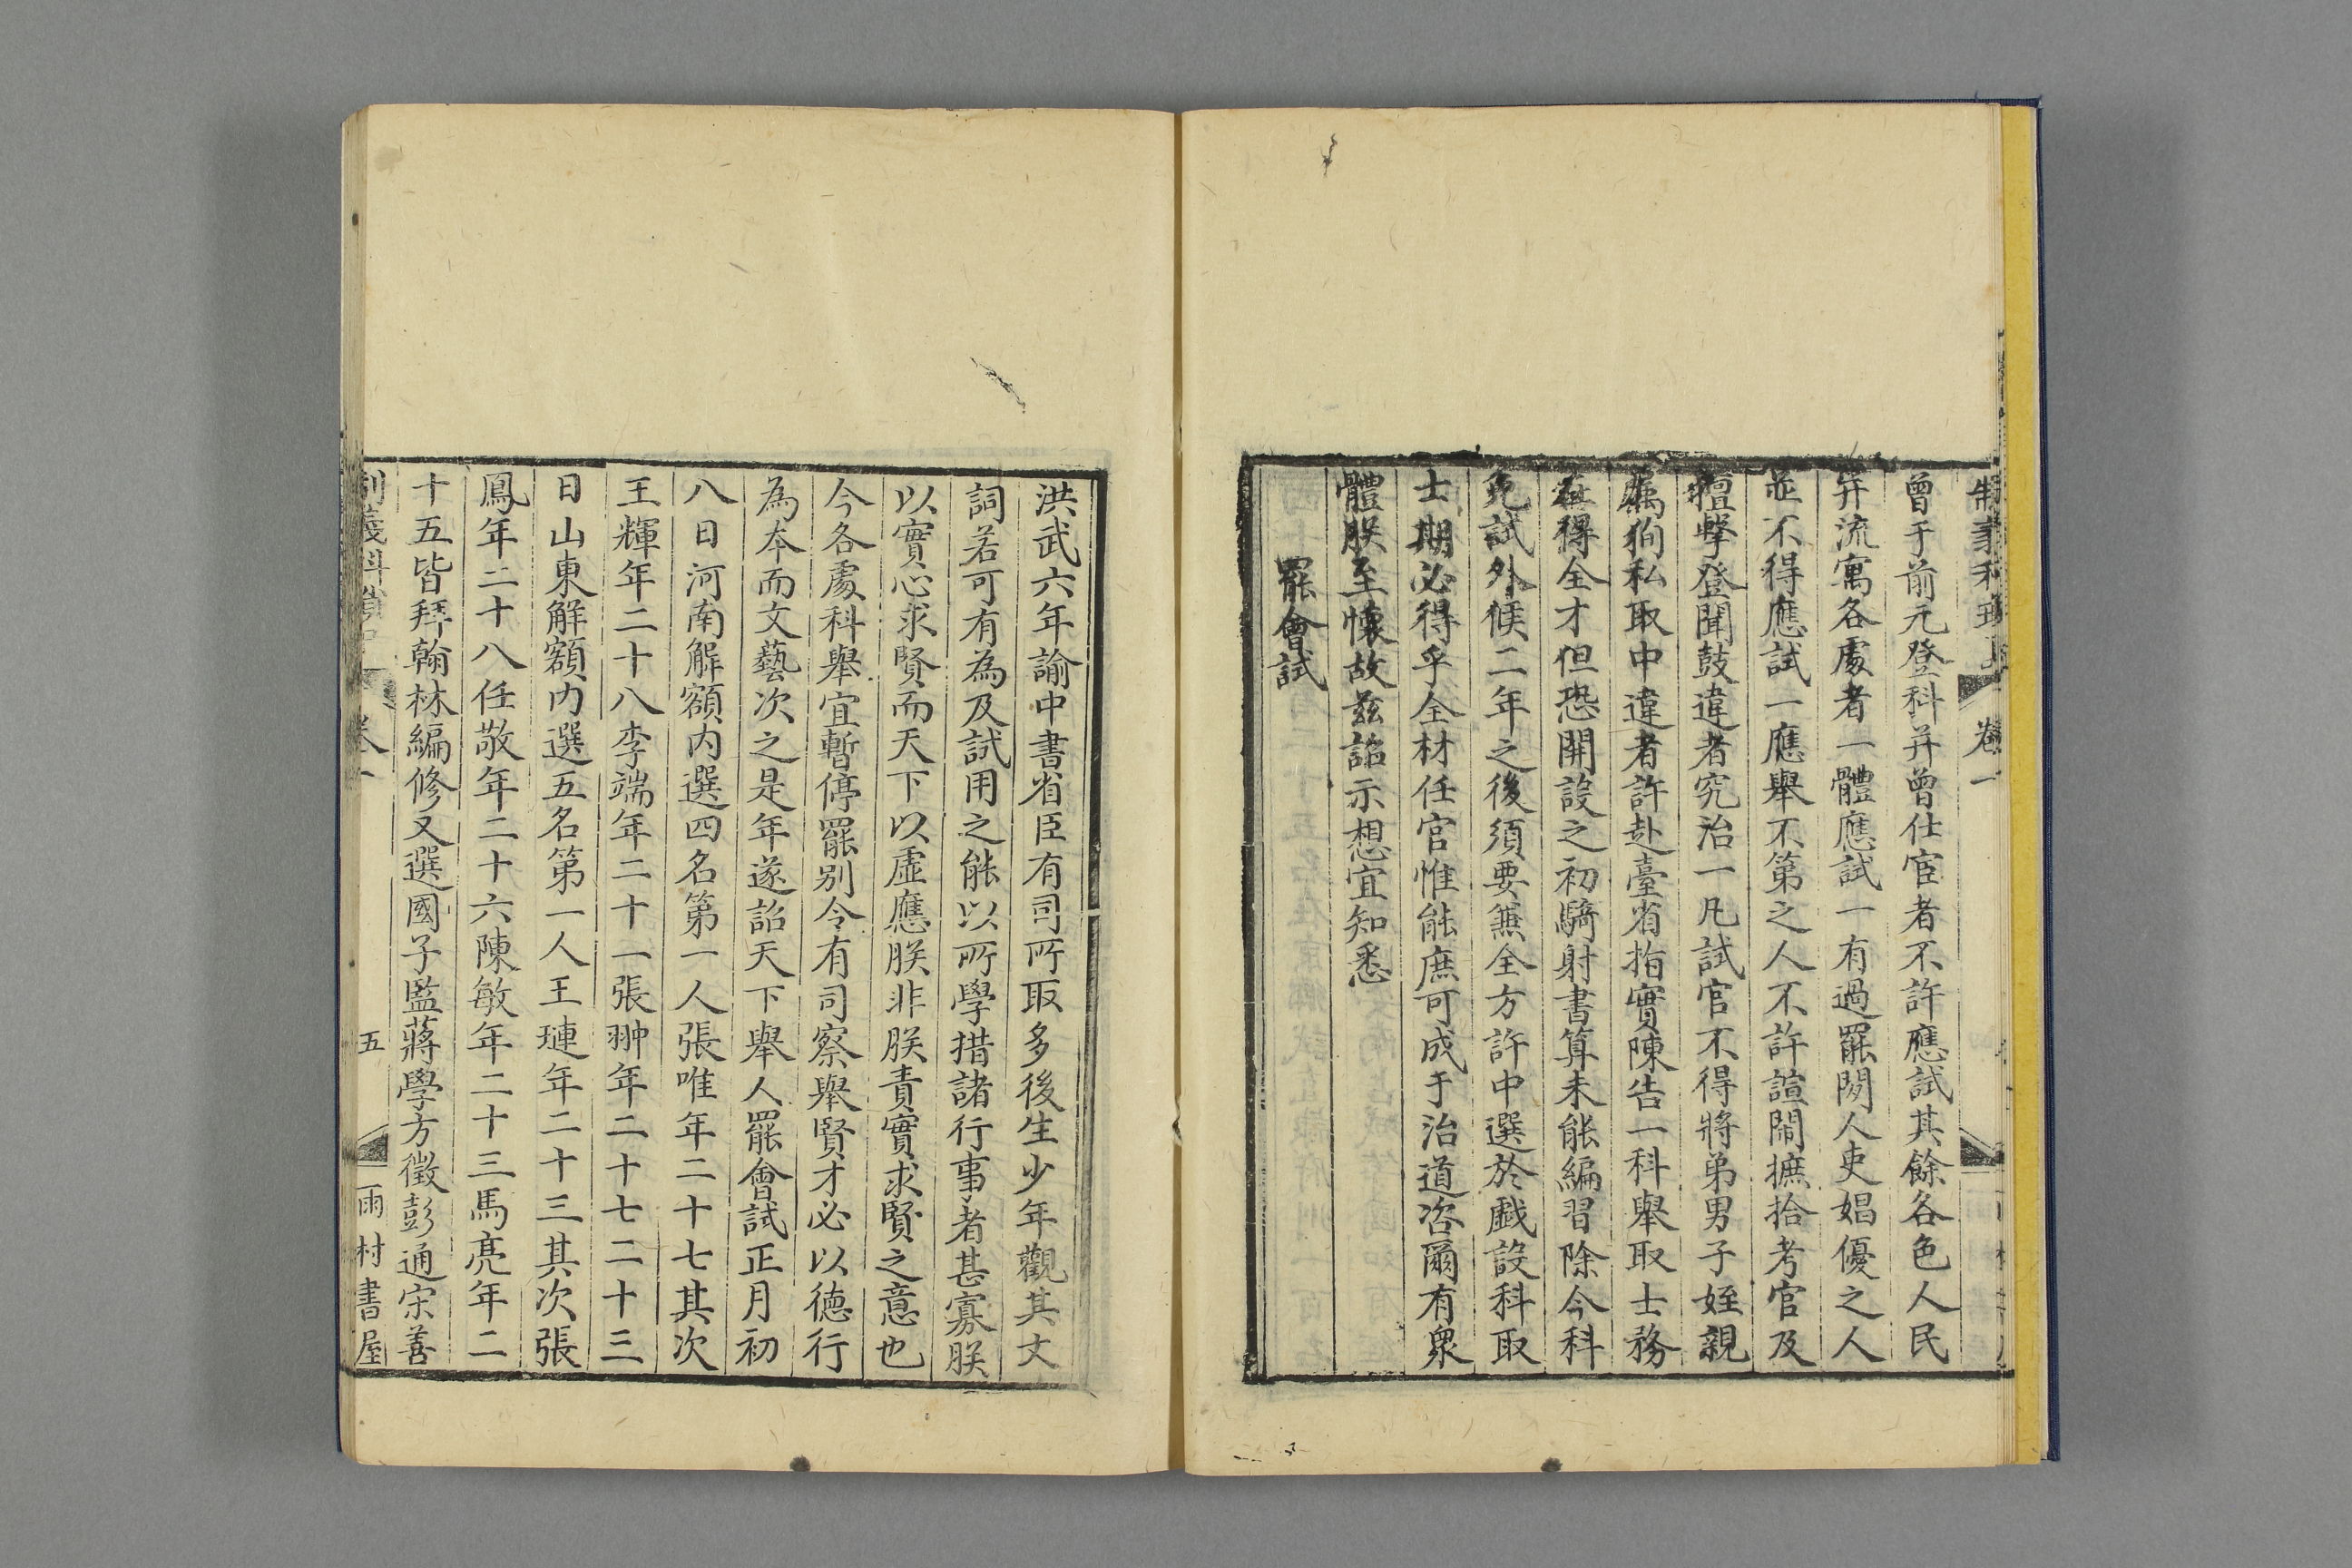 制義科瑣記 卷一
曾于前元登科并曾仕宦者不許應試其餘各色人民
并流寓各處者一體應試一有過罷閑人吏娼優之人
並不得應試一應舉不第之人不許諠閙摭拾考官及
擅擊登聞鼓違者究治一凡試官不得將弟男子姪親
屬徇私取中違者許赴臺省指實陳告一科舉取士務
在得全才但恐開設之初騎射書算未能編習除今科
免試外候二年之後須要兼全方許中選於戲設科取
士期必得乎全材任官惟能庶可成于治道咨爾有衆
體朕至懷故兹詔示想宜知悉
罷會試
洪武六年諭中書省臣有司所取多後生少年觀其文
詞若可有為及試用之能以所學措諸行事者甚寡朕
以實心求賢而天下以虛應朕非朕責實求賢之意也
今各處科舉宜暫停罷别令有司察舉賢才必以德行
為本而文藝次之是年遂詔天下舉人罷會試正月初
八日河南解額内選四名第一人張唯年二十七其次
王輝年二十八李端年二十一張翀年二十七二十三
日山東解額内選五名第一人王璉年二十三其次張
鳳年二十八任敬年二十六陳敏年二十三馬亮年二
十五皆拜翰林編修又選國子監蔣學方徵彭通宋善
制義科瑣記 卷一 五 雨村書屋